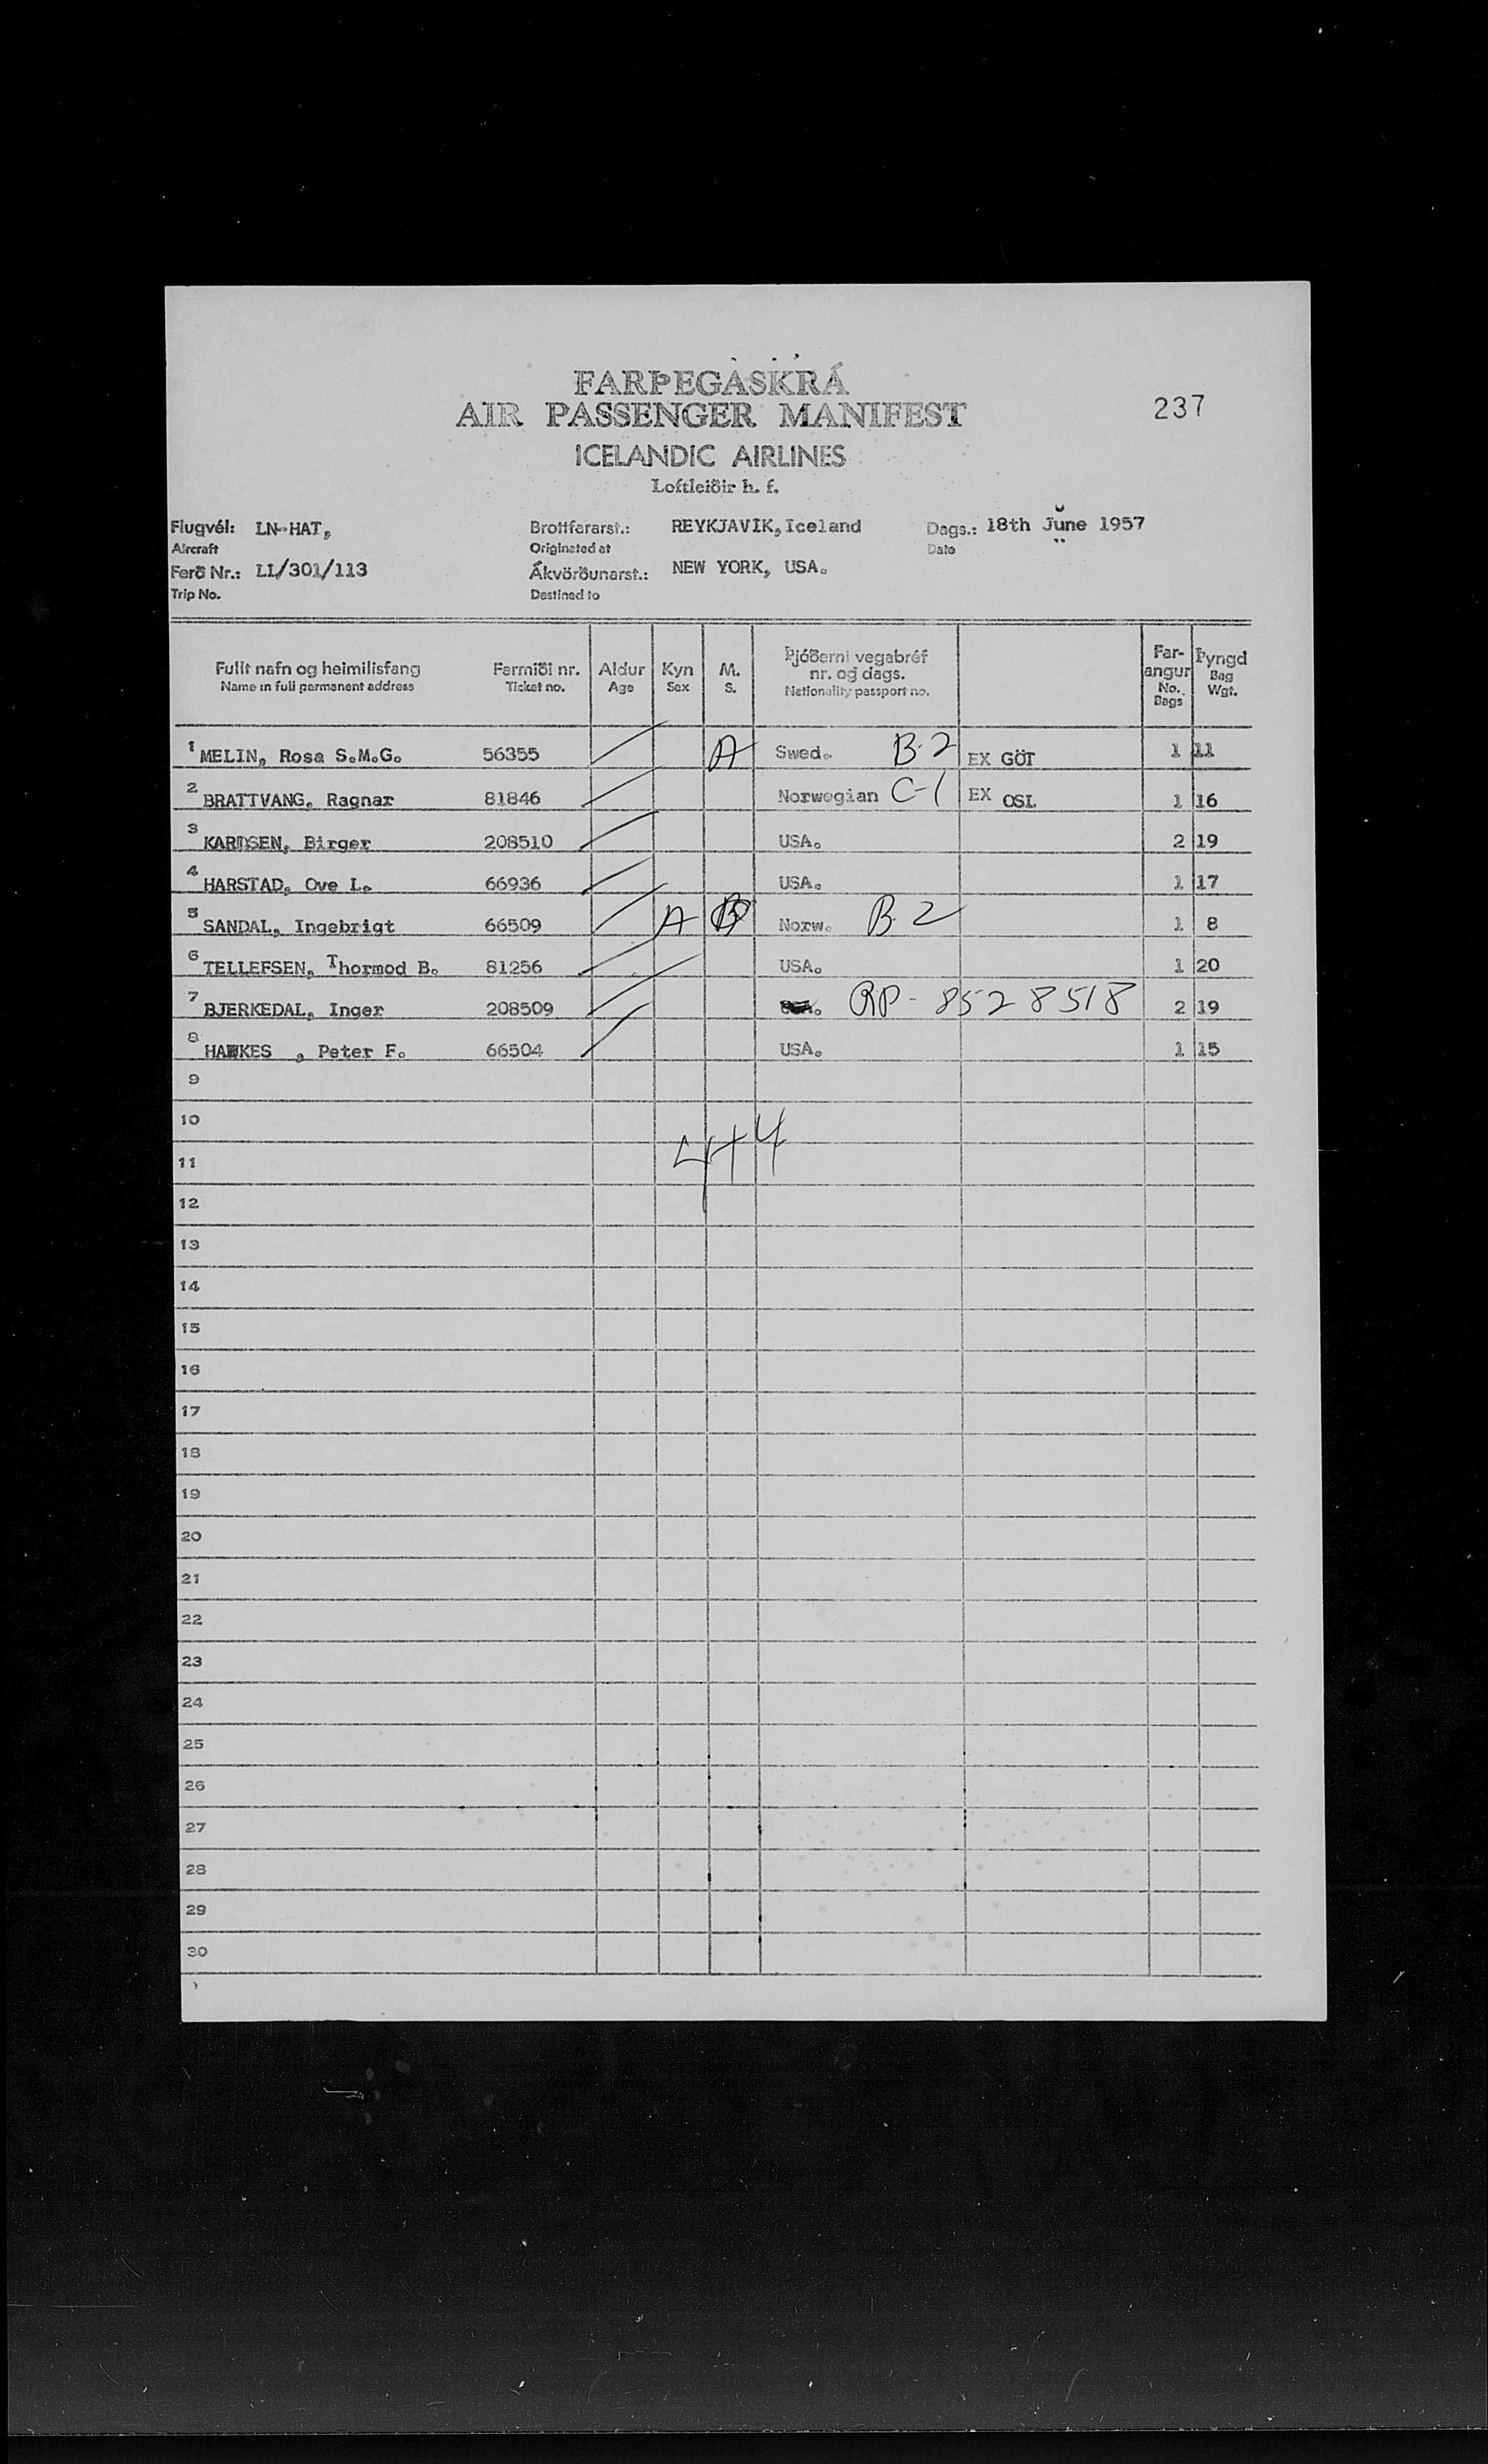 FARÞEGASKRÁ
AIR PASSENGER MANIFEST
237
ICELANDIC AIRLINES
Loftleiðir h. f.
Flugvél: LN-HAT, Brottfararst.: REYKJAVÍK, Iceland Dags.: 18th June 1957
Aircraft Originated at Date
Ferð Nr.: LL/301/113 Ákvörðunarst.: NEW YORK, USA.
Trip No. Destined to
Fullt nafn og heimilisfang Farmiði nr. Aldur Kyn M. Þjóðerni vegabréf nr. og dags. Far-angur Þyngd
Name in full permanent address Ticket no. Age Sex S. Nationality passport no. No. Bags Bag Wgt.
1 MELIN, Rosa S.M.G. 56355 A Swed. B-2 EX GÖT 1 11
2 BRATTVANG, Ragnar 81846 Norwegian C-1 EX OSL 1 16
3 Birger 208510 USA. 2 19
4 HARSTAD, Ove L. 66936 USA. 1 17
5 SANDAL, Ingebrigt 66509 A B Norw. B-2 1 8
6 TELLEFSEN, Thormod B. 81256 USA. 1 20
7 BJERKEDAL, Inger 208509 RP-8528518 2 19
8 HAWKES , Peter F. 66504 USA. 1 15
9
10
4+4
11
12
13
14
15
16
17
18
19
20
21
22
23
24
25
26
27
28
29
30